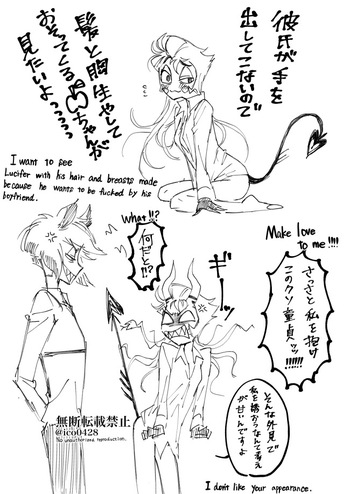 彼氏が手を
出してこないので
髪と胸生やして
おそってくる
ちゃんが
見たいよっっっっっ
I want to see
Lucifer with his hair and breasts made
because he wants to be fucked by his
boyfriend.
what!!?
何だと!!?
ギャーッ
Make love
to me!!!!
さっさと私を抱け
このクソ童貞ッッ!!!!!!
そんな外見で
私を誘おうなんて考え
が甘いんですよ
I don't like your appearance.
無断転載禁止
@ico0428
No unauthorized reproduction.